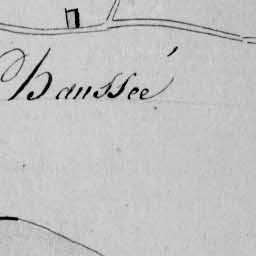 Chaussée